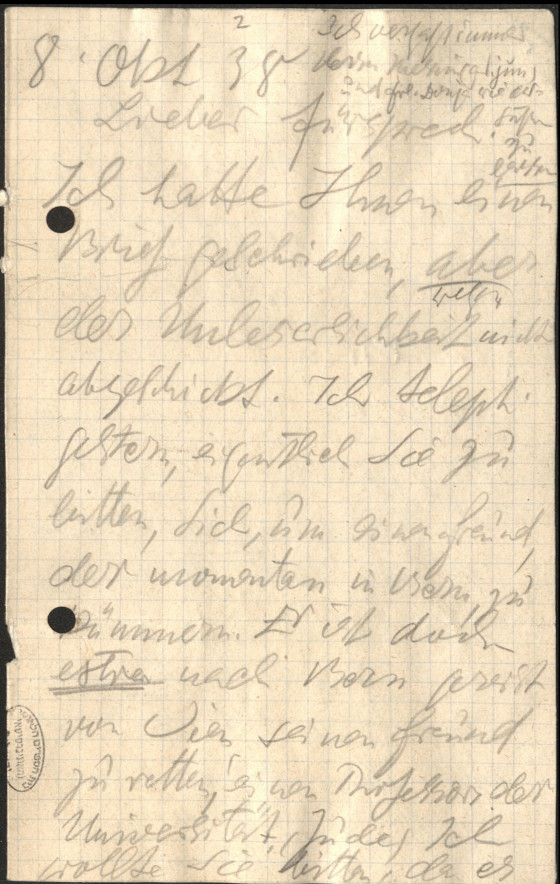 2
Ich vergaß immer
und
zu
8. Okt 38
Lieber Fürsprech.
Ich hatte Ihnen einen
Brief geschrieben, aber
wegen
der Unleserlichkeit nicht
abgeschickt. Ich teleph.
gestern, eigentlich Sie zu
bitten, sich, um einen Freund,
der momentan in Bern, zu
kümmern. Er ist doch
extra nach Bern gereist
von Wien seinen Freund
zu retten, einen Professor der
Universität, Jude, Ich
wollte Sie bitten, da er